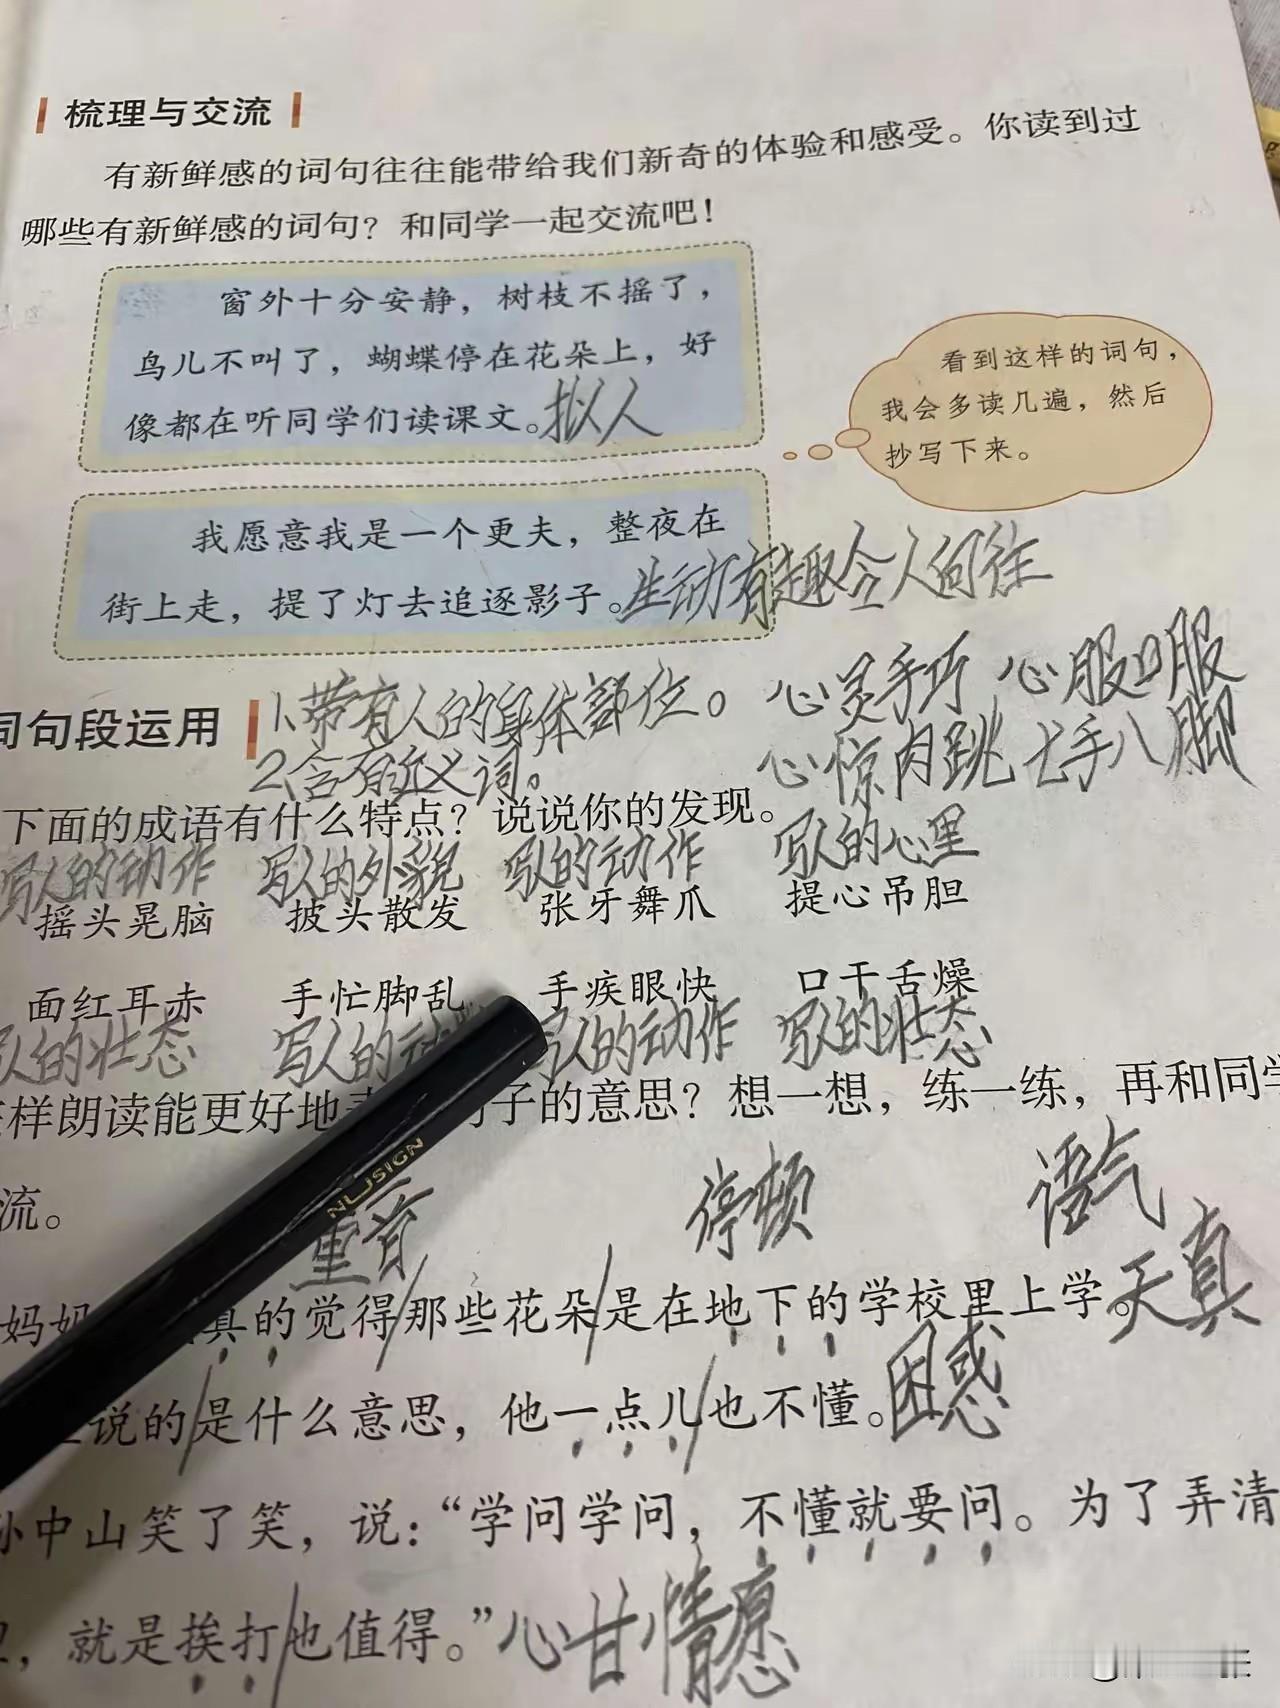 梳理与交流
有新鲜感的词句往往能带给我们新奇的体验和感受。你读到过
哪些有新鲜感的词句？和同学一起交流吧！
窗外十分安静，树枝不摇了，
鸟儿不叫了，蝴蝶停在花朵上，好
像都在听同学们读课文。拟人
看到这样的词句，
我会多读几遍，然后
抄写下来。
我愿意我是一个更夫，整夜在
街上走，提了灯去追逐影子。生动有趣令人向往
词句段运用
1、带有人的身体部位。 心灵手巧 心服口服
2、含有近义词。 心惊肉跳 七手八脚
下面的成语有什么特点？说说你的发现。
写人的动作 写人的外貌 写人的动作 写人的心里
摇头晃脑 披头散发 张牙舞爪 提心吊胆
面红耳赤 手忙脚乱 手疾眼快 口干舌燥
人的壮态 写人的动 写人的动作 写人的壮态
样朗读能更好地 子的意思？想一想，练一练，再和同学
流。
重音 停顿 语气
妈妈 真的觉得/那些花朵/是在地下的学校里上学。天真
说的/是什么意思，他一点儿/也不懂。困惑
孙中山笑了笑，说：“学问学问，不懂就要问。为了弄清
，就是挨打/也值得。”心甘情愿
NUSIGN